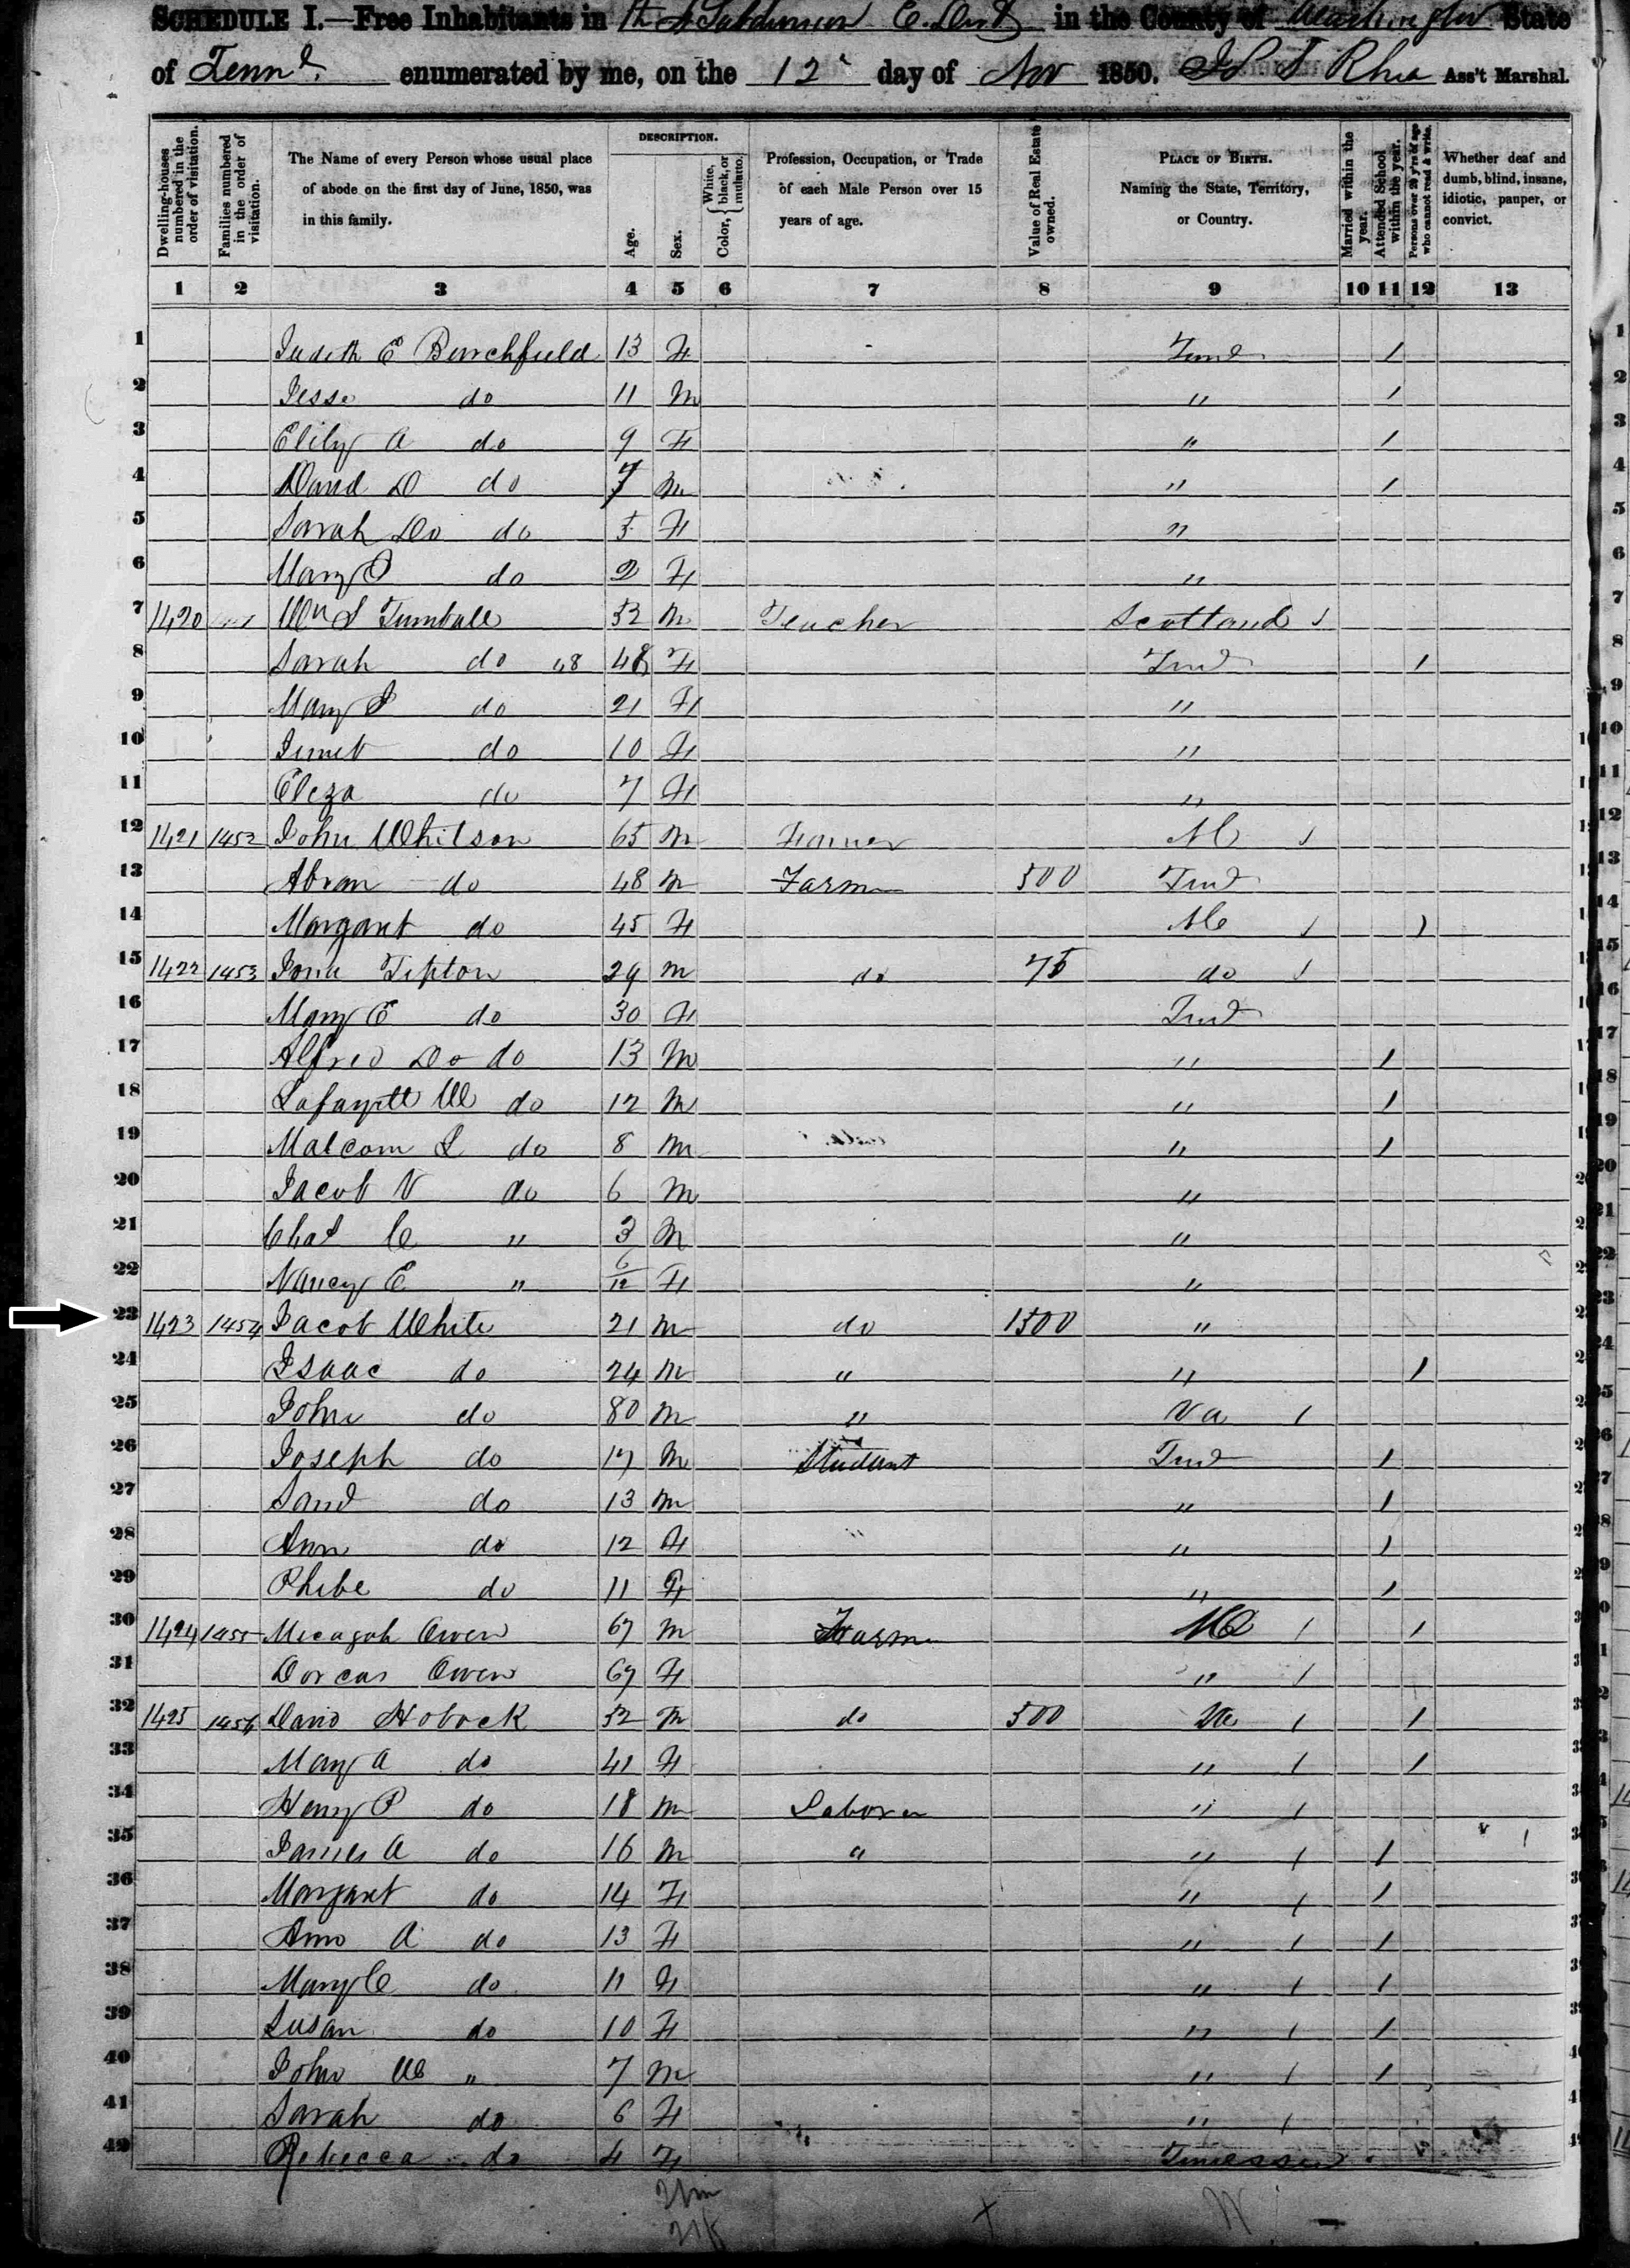 SCHEDULE I.—Free Inhabitants in 4th Subdivision E. Dist in the County of Washington State
of Tennε. enumerated by me, on the 12 day of Nov 1850. Rhea Ass't Marshal.
Dwelling-houses numbered in the order of visitation.
Families numbered in the order of visitation.
The Name of every Person whose usual place of abode on the first day of June, 1850, was in this family.
DESCRIPTION.
Age.
Sex.
Color, White, black, or mulatto.
Profession, Occupation, or Trade of each Male Person over 15 years of age.
Value of Real Estate owned.
PLACE OF BIRTH. Naming the State, Territory, or Country.
Married within the year.
Attended School within the year.
Persons over 20 y'rs of age who cannot read & write.
Whether deaf and dumb, blind, insane, idiotic, pauper, or convict.
1 2 3 4 5 6 7 8 9 10 11 12 13
1 Judith E Burchfield 13 F Tend 1
2 Jesse do 11 M " 1
3 A do 9 F " 1
4 David D do 7 M " 1
5 Sarah Do do 5 F "
6 Mary do 2 F "
7 1420 Wm S Turnbull 52 M Teacher Scotland 1
8 Sarah do 48 48 F Tend 1
9 Mary do 21 F "
10 do 10 F "
11 Eleza do 7 F "
12 1421 1452 John Whitson 65 M Farmer NC 1
13 Abram do 48 M Farm 500 Tend
14 Margaret do 45 F NC 1 1
15 1422 1453 Tipton 29 M do 75 do 1
16 Mary E do 30 F Tend
17 Alfred Do do 13 M " 1
18 Lafayett W do 12 M " 1
19 Malcom L do 8 M " 1
20 Jacob V do 6 M "
21 Chas C " 3 M "
22 Nancy E " 6/12 F "
23 1423 1454 Jacob White 21 M do 1500 "
24 Isaac do 24 M " " 1
25 John do 80 M " Va 1
26 Joseph do 17 M Student Tend 1
27 do 13 M " 1
28 Ann do 12 F " 1
29 Phibe do 11 F " 1
30 1424 1455 Micagah Owen 67 M Farm 1 1
31 Dorcas Owen 67 F " 1
32 1425 1456 David Hobock 52 M do 500 Va 1 1
33 Mary A do 41 F " 1 1
34 Henry P do 18 M Laborer " 1
35 James A do 16 M " " 1 1
36 Margaret do 14 F " 1 1
37 Ann A do 13 F " 1 1
38 Mary C do 11 F " 1 1
39 Susan do 10 F " 1 1
40 John W " 7 M " 1 1
41 Sarah do 6 F " 1
42 Rebecca do 4 F Tennessee